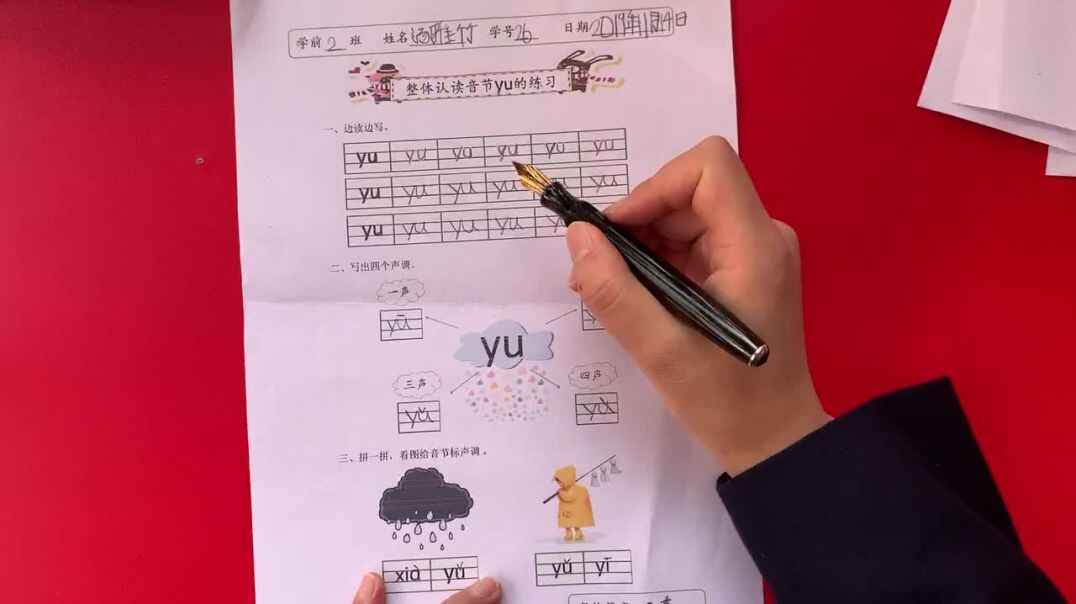 学前 2 班 姓名 汤雅竹 学号 26 日期 2019年1月14日
整体认读音节yu的练习
一、边读边写。
yu yu yu yu yu yu
yu yu yu yu yu
yu yu yu yu
二、写出四个声调。
一声
yū
yu
三声 四声
yǔ yù
三、拼一拼，看图给音节标声调。
xià yǔ yǔ yī